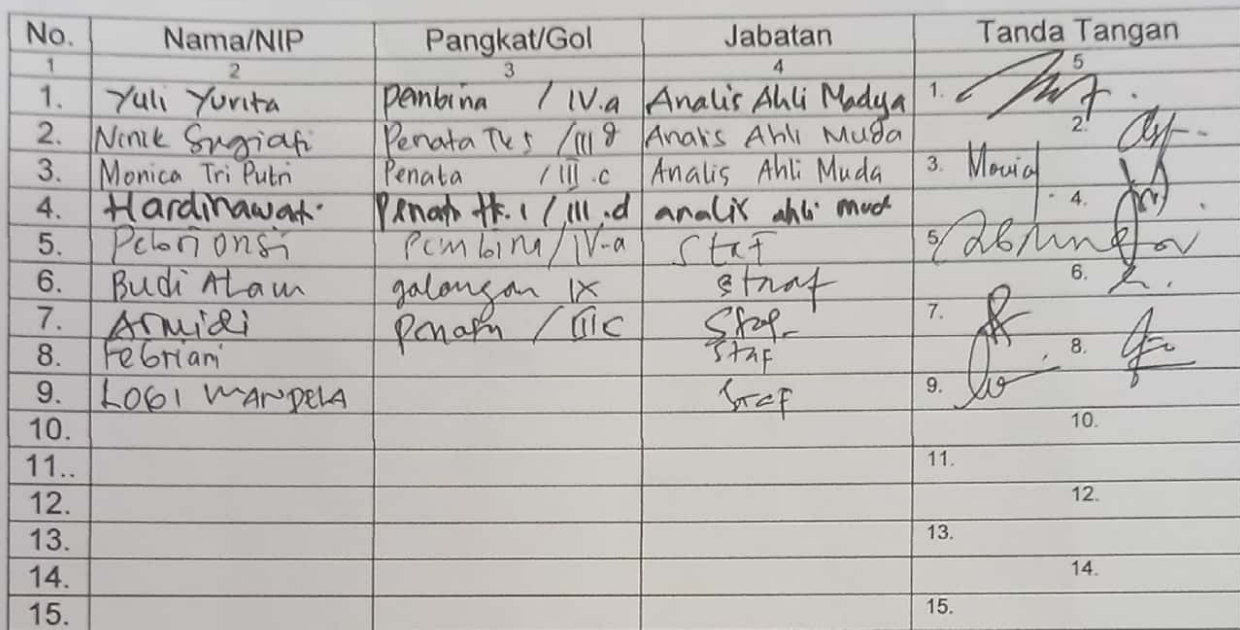 No. Nama/NIP Pangkat/Gol Jabatan Tanda Tangan
1 2 3 4 5
1. Yuli Yurita Pembina / IV.a Analis Ahli Madya 1.
2. Ninik Penata / III Analis Ahli Muda 2.
3. Monica Tri Putri Penata / III.c Analis Ahli Muda 3.
4. Hardinawati Penata / III.d analis ahli mud 4.
5. Pembina/IV-a Staf 5.
6. Budi Alam golongan IX staaf 6.
7. Armidi Penata / IIIc Staf 7.
8. Febriani Staf 8.
9. LOGI MANDELA Staf 9.
10. 10.
11.. 11.
12. 12.
13. 13.
14. 14.
15. 15.